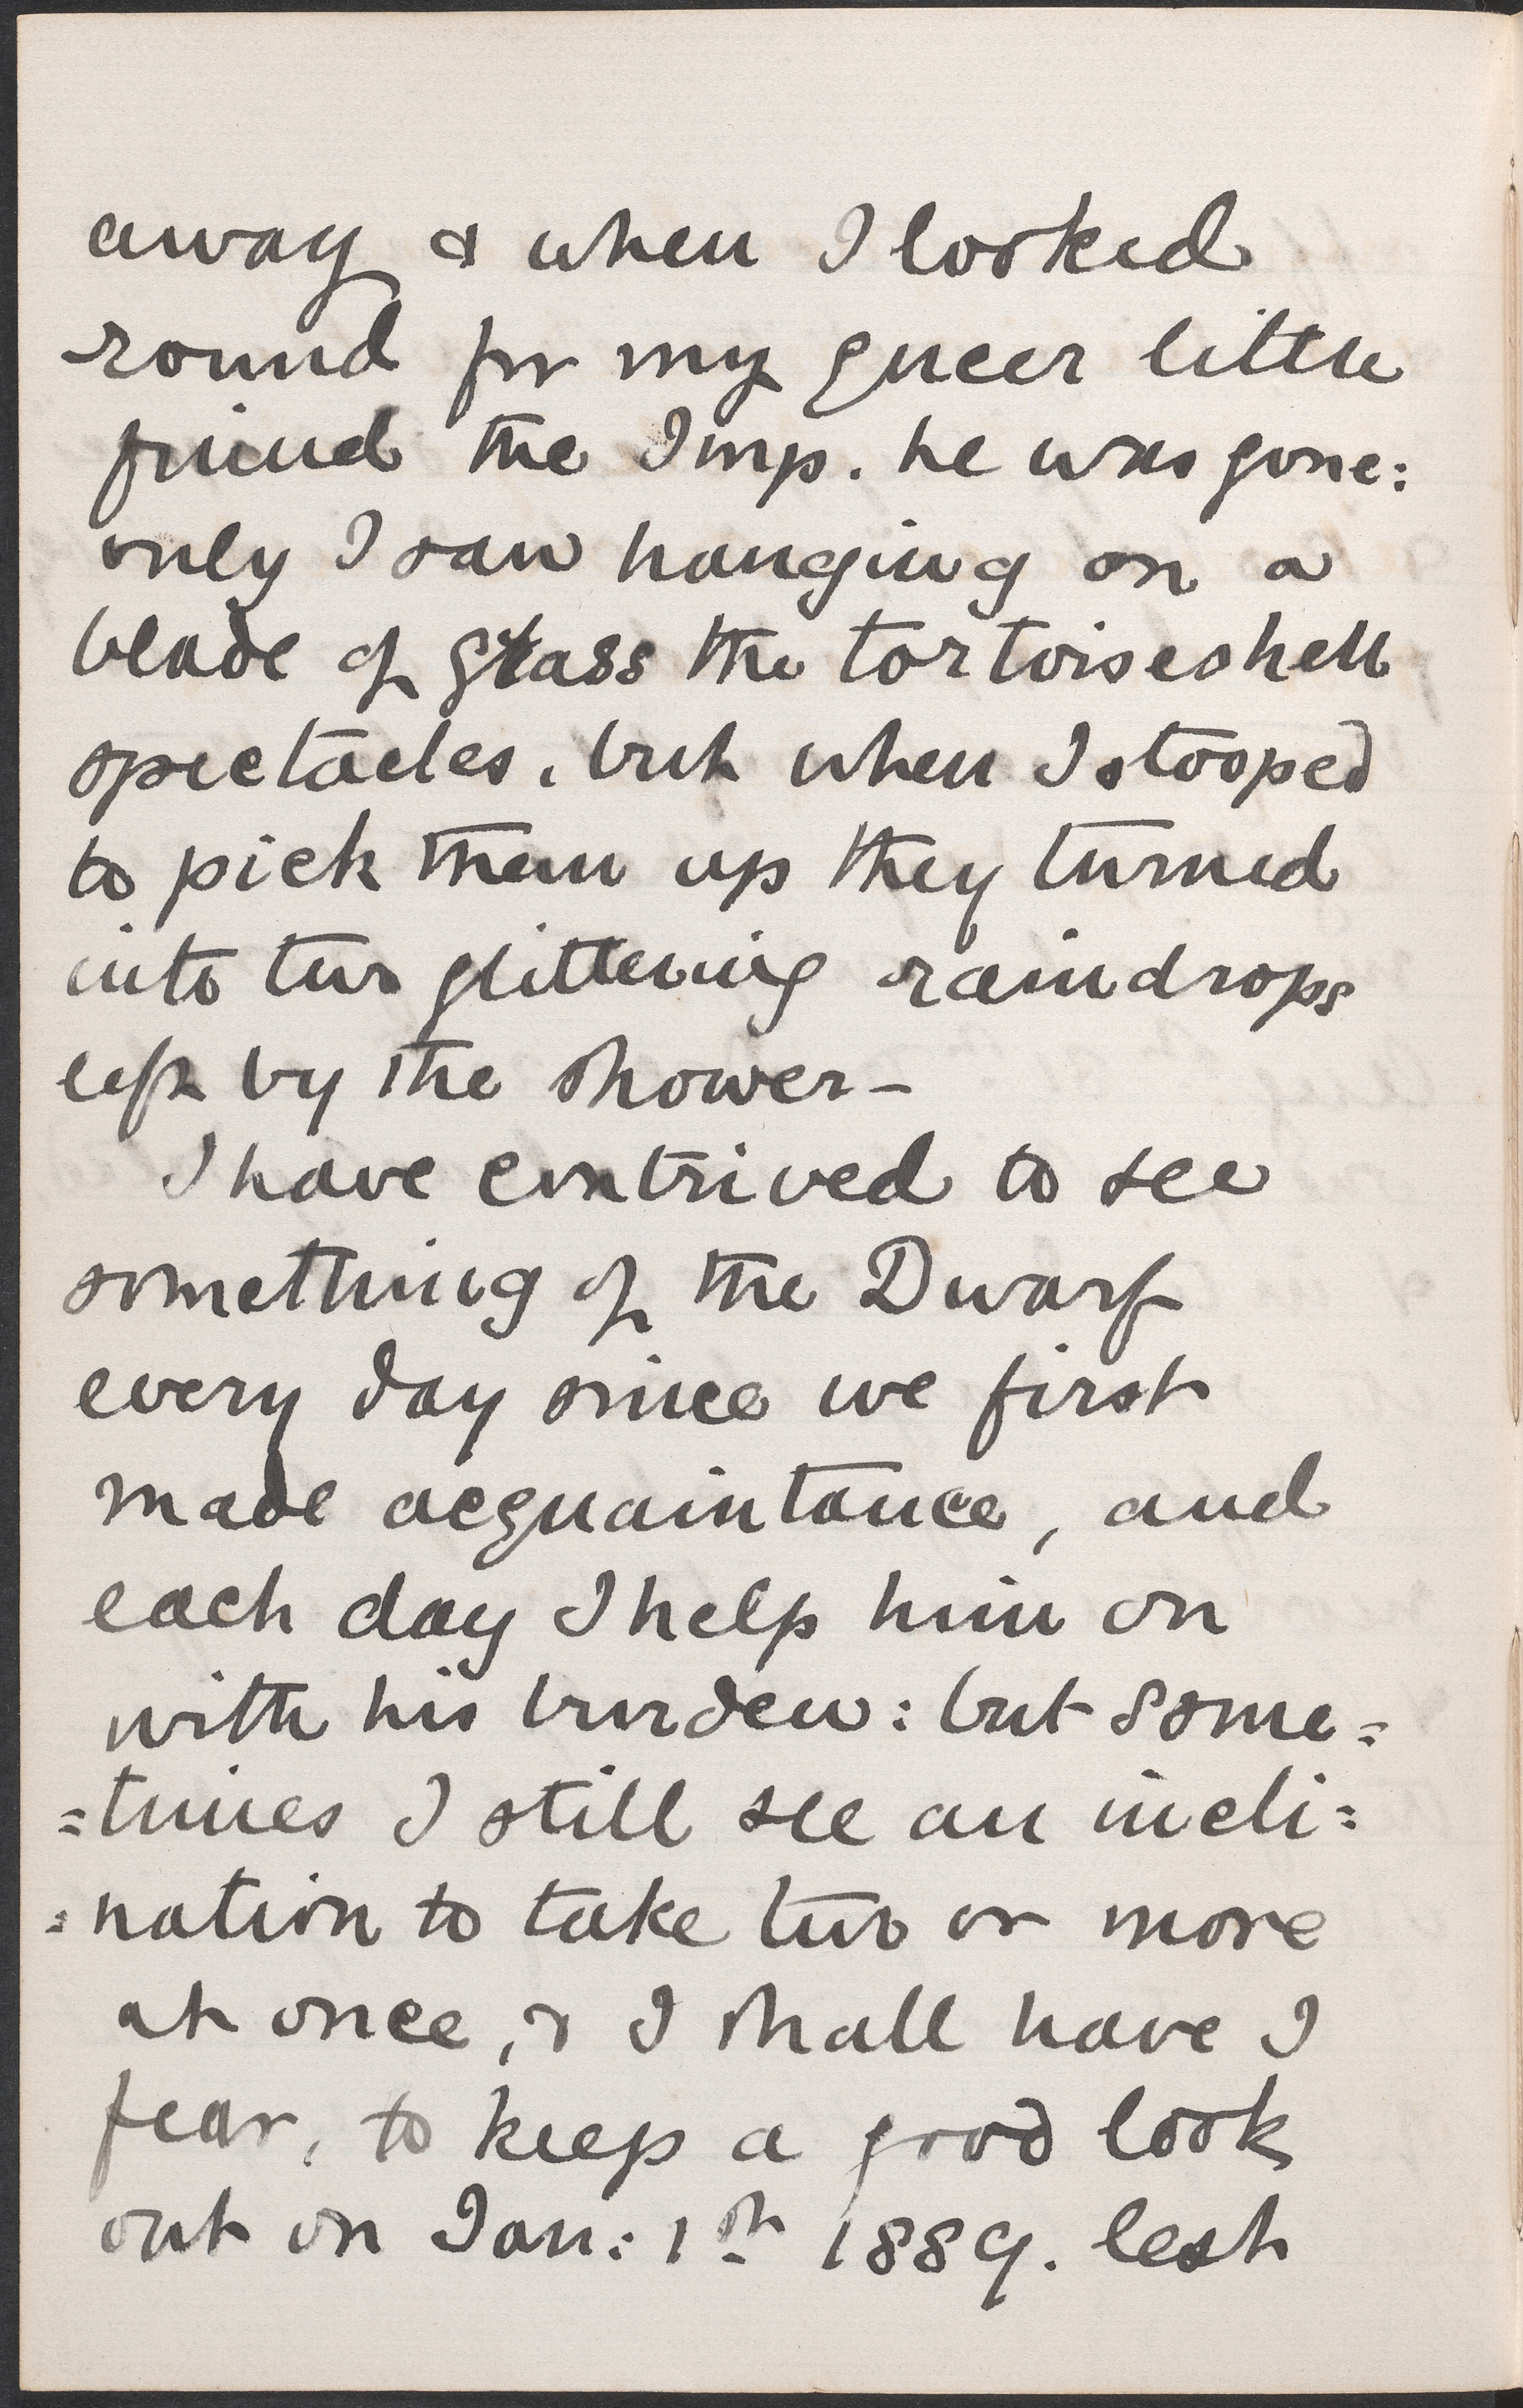 away & when I looked
round for my queer little
friend the Imp. he was gone:
only I saw hanging on a
blade of grass the tortoiseshell
spectacles, but when I stooped
to pick them up they turned
into two glittering raindrops
left by the shower-
I have contrived to see
something of the Dwarf
every day since we first
made acquaintance, and
each day I help him on
with his burden: but some=
=times I still see an incli=
=nation to take two or more
at once, & I shall have I
fear, to keep a good look
out on Jan: 1st 1889. lest